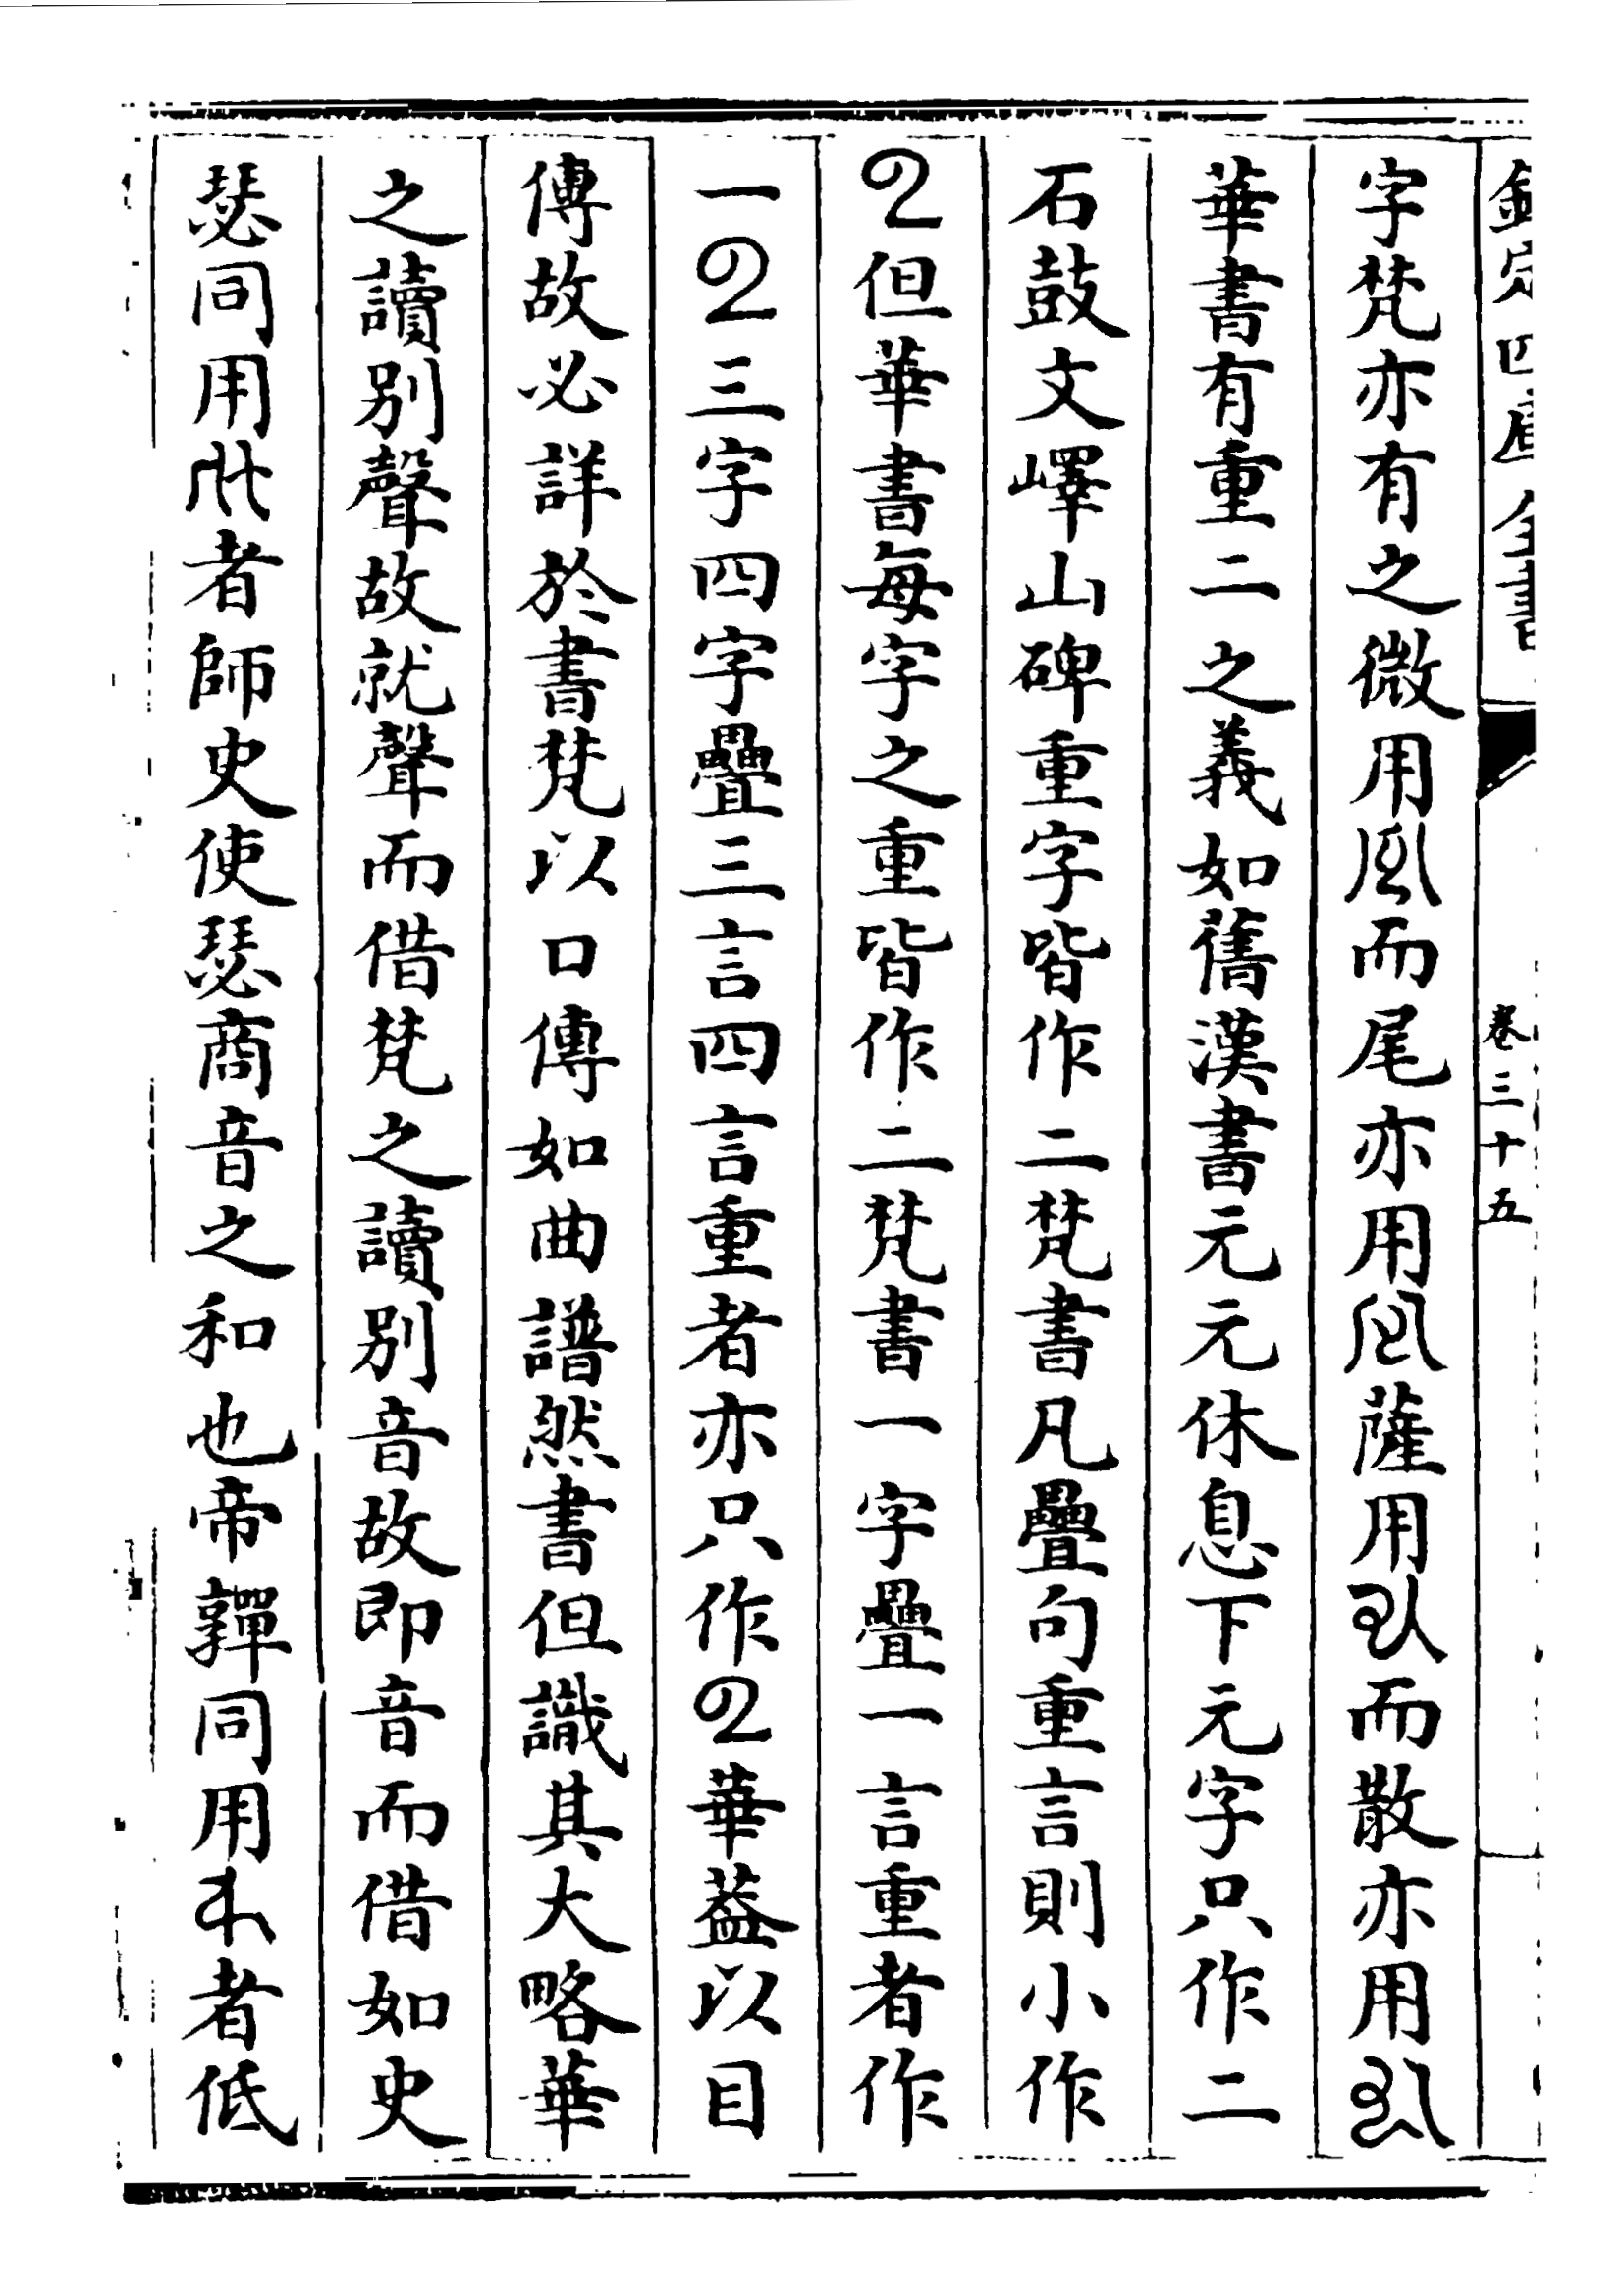 欽定四庫全書
卷三十五
字梵亦有之微用而尾亦用薩用而散亦用
華書有重二之義如舊漢書元元休息下元字只作二
石鼓文嶧山碑重字皆作二梵書凡疊句重言則小作
但華書每字之重皆作二梵書一字疊一言重者作
一三字四字疊三言四言重者亦只作華葢以目
傳故必詳於書梵以口傳如曲譜然書但識其大略華
之讀別聲故就聲而借梵之讀別音故即音而借如史
瑟同用者師史使瑟商音之和也帝嚲同用者低